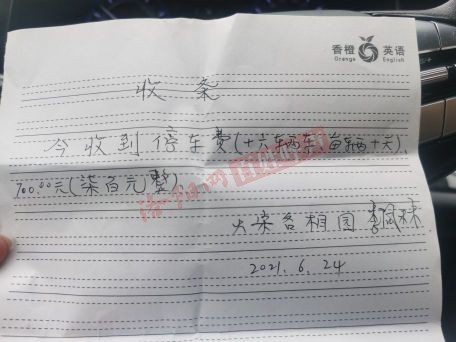 香橙 英语
Orange English
收条
今收到停车费(十六车两车,每车两十天),
700.00元(柒百元)整.
大梁各相园 李
2021.6.24